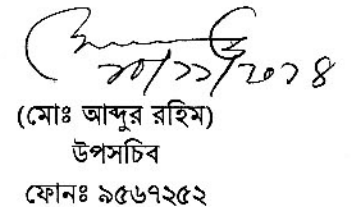 ২০/১১/২০১৪
(মোঃ আব্দুর রহিম)
উপসচিব
ফোনঃ ৯৫৬৭২৫২